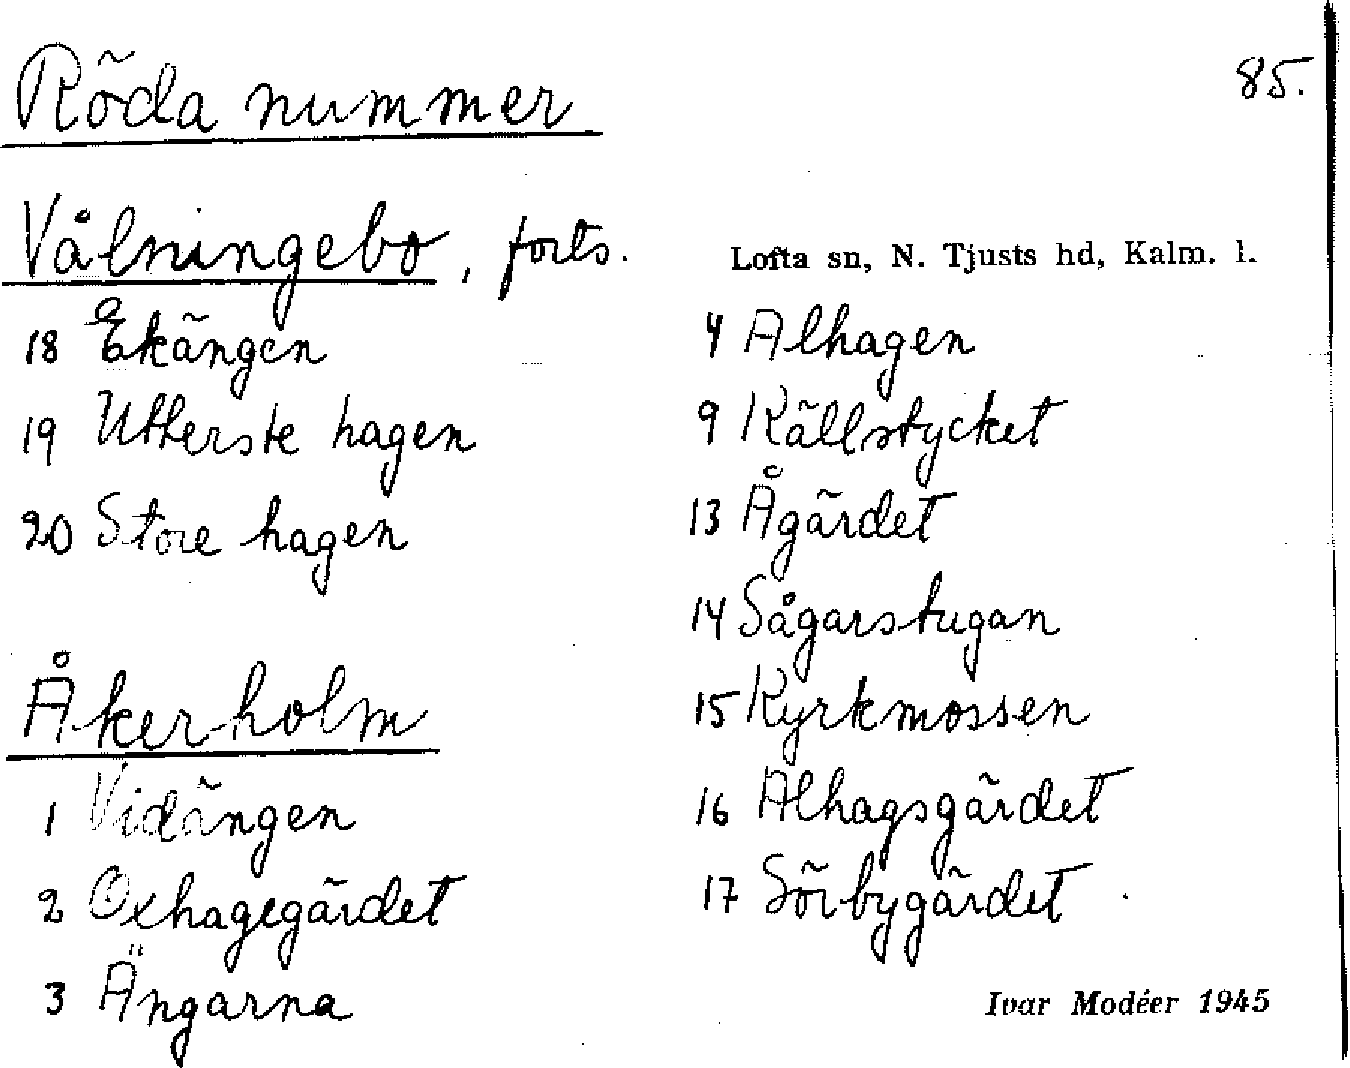 Röda nummer
85.
Vålningebo, forts.
Lofta sn, N. Tjusts hd, Kalm. l.
18 Ekängen
19 Utterste hagen
20 Store hagen
Åkerholm
1 Vidängen
2 Oxhagegärdet
3 Ängarna
4 Alhagen
9 Källstycket
13 Ågärdet
14 Sågarstugan
15 Kyrkmossen
16 Alhagsgärdet
17 Sörbygärdet
Ivar Modéer 1945